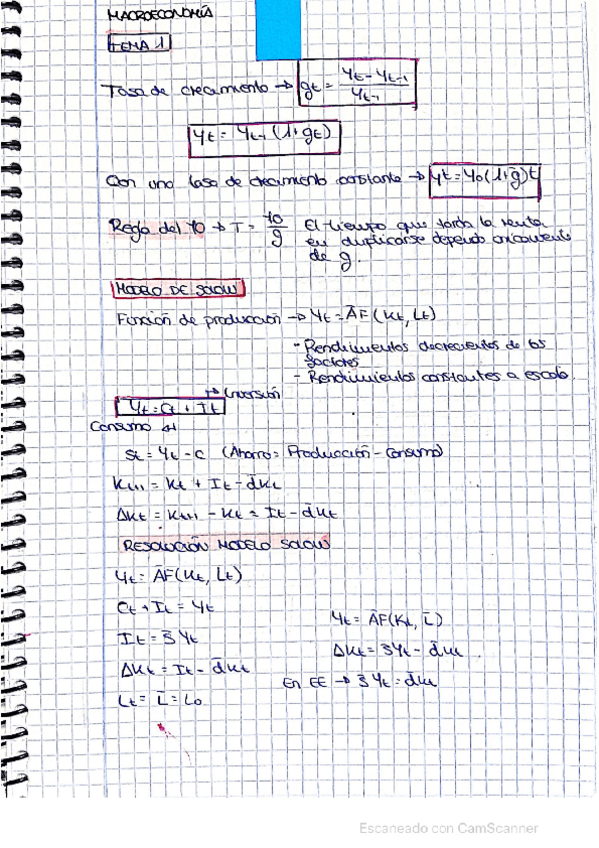 MACROECONOMÍA
TEMA 1
Tasa de crecimiento → gt = (Yt - Yt-1) / Yt-1
Yt = Yt-1 (1+gt)
Con una tasa de crecimiento constante → Yt = Y0 (1+g̅)t
Regla del 70 → T = 70/g El tiempo que tarda la renta
en duplicarse depende únicamente
de g.
MODELO DE SOLOW
Función de producción → Yt = A̅F(Kt, Lt)
- Rendimientos decrecientes de los
factores
- Rendimientos constantes a escala.
→ Inversión
Yt = Ct + It
Consumo ↵
St = Yt - C (Ahorro = Producción - Consumo)
Kt+1 = Kt + It - d̅Kt
ΔKt = Kt+1 - Kt = It - d̅Kt
RESOLUCIÓN MODELO SOLOW
Yt = A̅F(Kt, Lt)
Ct + It = Yt
It = s̅Yt
ΔKt = It - d̅Kt
Lt = L̅ = L0
Yt = A̅F(Kt, L̅)
ΔKt = s̅Yt - d̅Kt
En EE → s̅Yt = d̅Kt
Escaneado con CamScanner